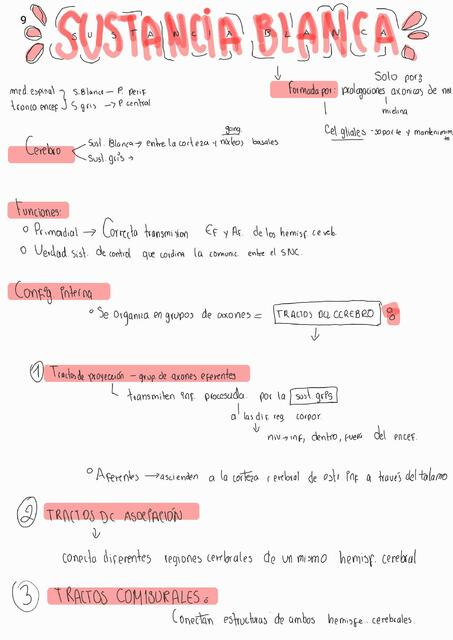 9
SUSTANCIA BLANCA
med. espinal } S.Blanca – P. perif
tronco encef } S gris -> P central
Formada por: prolongaciones axonicas de
Solo por
mielina
Cel gliales - soporte y
Cerebro
Sust. Blanca -> entre la corteza y nucleos basales
gang.
Sust. gris ->
Funciones:
o Primordial -> Correcta transmision Ef y Af. de los hemisf cereb.
o Verdad sist. de control que cordina la comunic entre el SNC.
Config interna
o Se organiza en grupos de axones = TRACTOS DEL CEREBRO
1 Tractos de proyección – grup de axones eferentes
transmiten inf. procesada por la sust gris
a las dif. reg corpor.
niv -> inf, dentro, fuera del encef.
o Aferentes -> ascienden a la corteza cerebral de inf a través del talamo
2 TRACTOS DE ASOCIACIÓN
conecta diferentes regiones cerebrales de un mismo hemisf. cerebral
3 TRACTOS COMISURALES:
Conectan estructuras de ambos hemisfe. cerebrales.